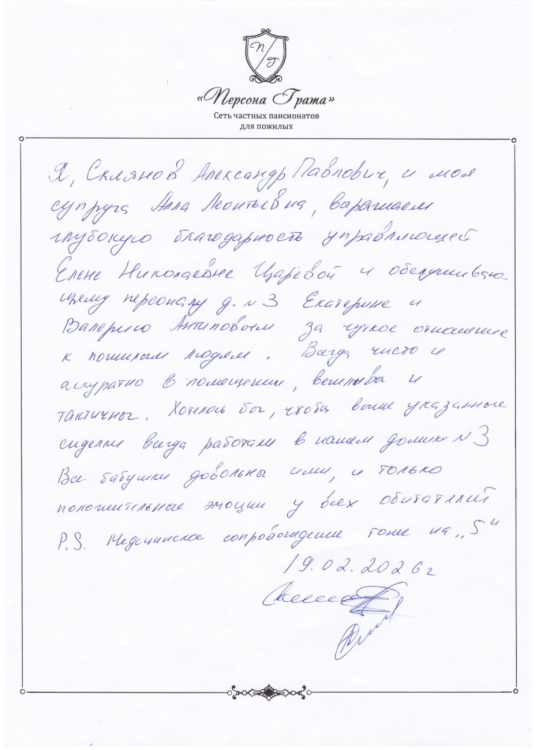 П Г
«Персона Грата»
Сеть частных пансионатов
для пожилых
Я, Склянов Александр Павлович, и моя
супруга Алла Леонтьевна, варажаем
глубокую благодарность управляющей
Елене Николаевне Царевой и обслужива-
щему персоналу д. №3 Екатерине и
Валерию Антиповым за чуткое отношение
к пожилым людям. Всегда чисто и
аккуратно в помещении, вежливы и
тактичны. Хотелось бы, чтобы выше указанные
сиделки всегда работали в нашем домике №3
Все бабушки довольны ими, и только
положительные эмоции у всех обитателей
P.S. Медицинское сопровождение тоже на „5"
19.02.2026г